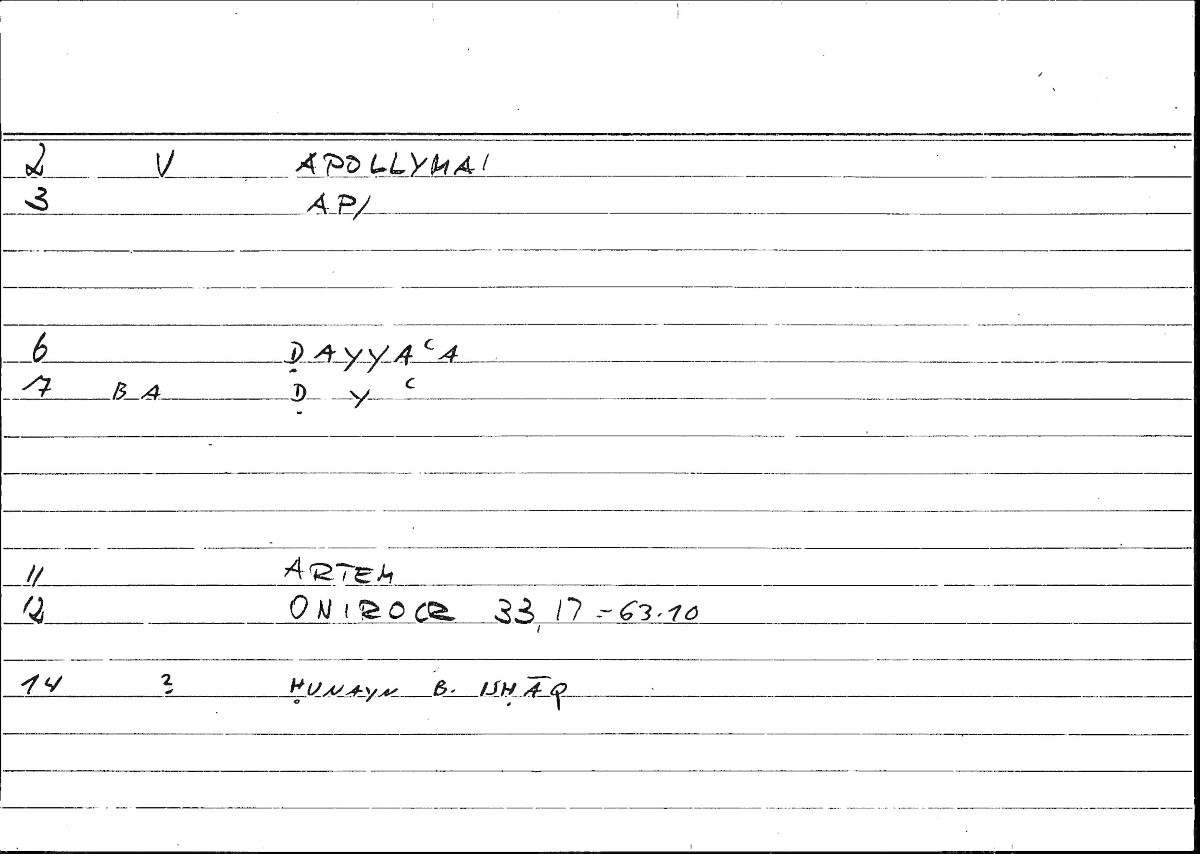 2 V APOLLYMAI
3 AP/
6 ḌAYYAʿA
7 BA Ḍ Y ʿ
11 ARTEM
12 ONIROCR 33,17 = 63.10
14 ? ḤUNAYN B. ISḤĀQ